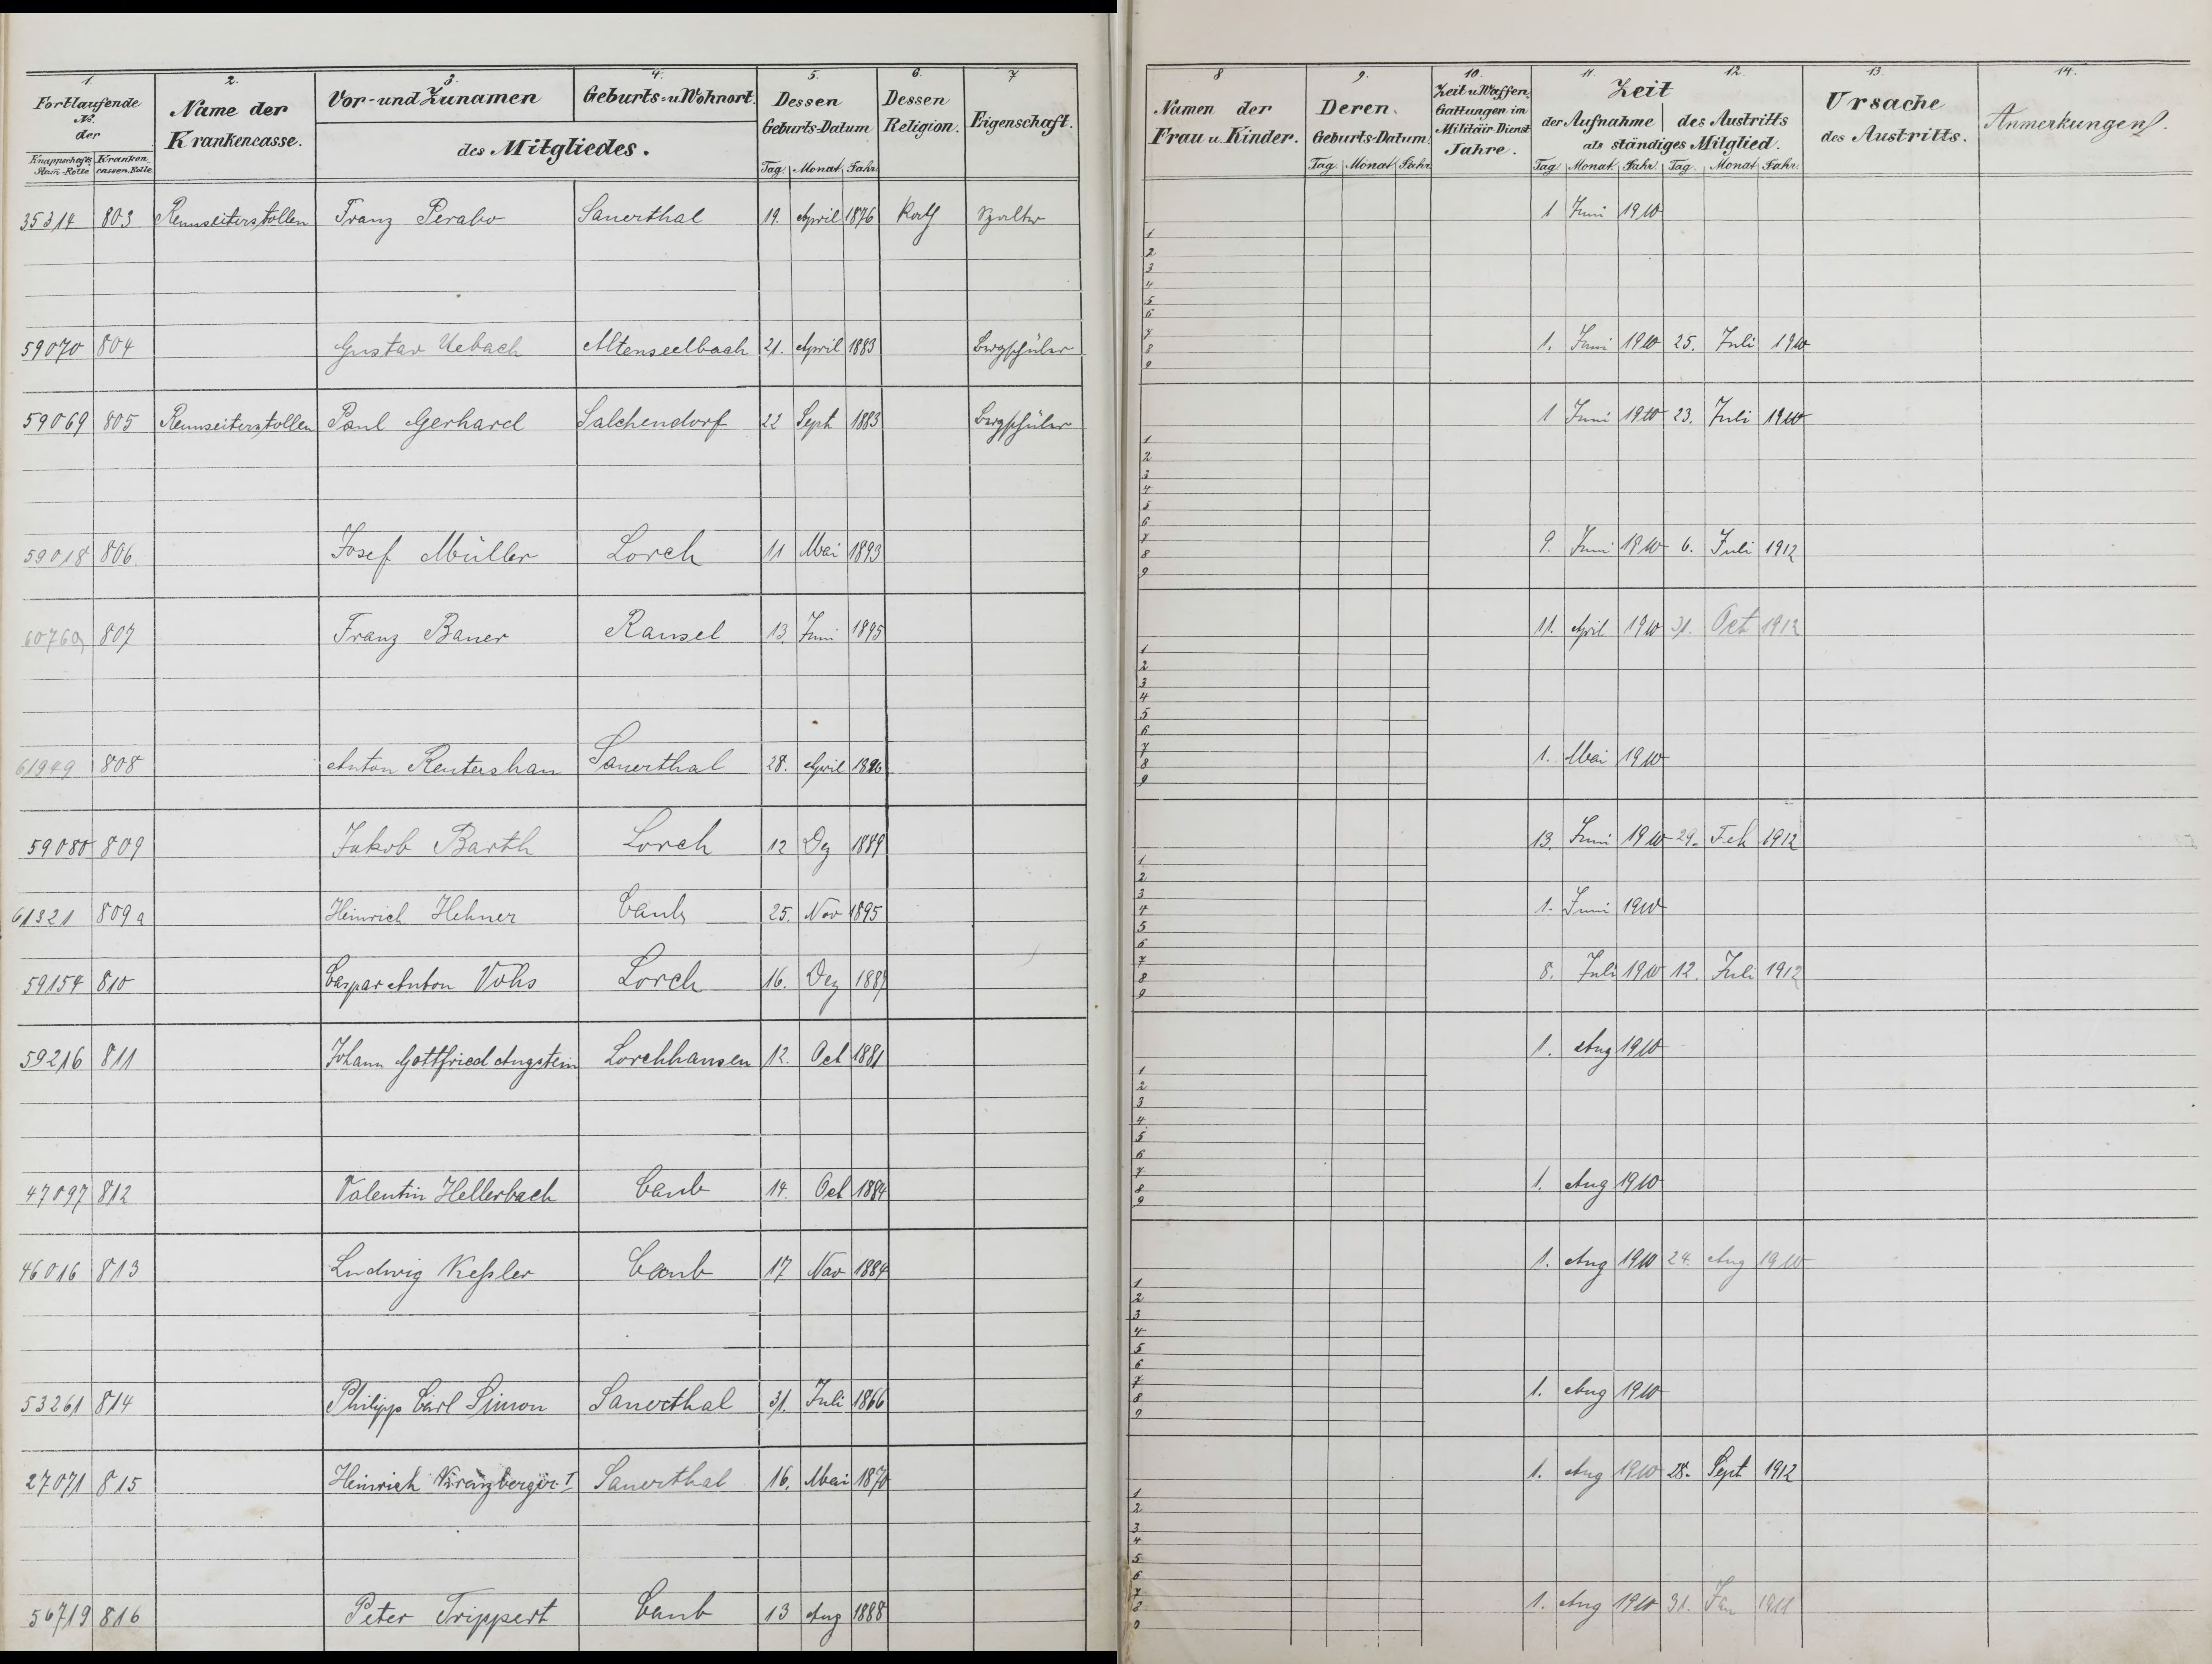 1. 2. 3. 4. 5. 6. 7 8 9. 10. 11. 12. 13. 14.
Fortlaufende No. der
Knappschafts Stam-Rolle Kranken cassen-Rolle
Name der Krankencasse.
Vor- und Zunamen Geburts- u. Wohnort.
des Mitgliedes.
Dessen Geburts-Datum
Tag. Monat. Jahr.
Dessen Religion.
Eigenschaft.
Namen der Frau u. Kinder.
Deren Geburts-Datum
Tag. Monat. Jahr.
Zeit u. Waffen Gattungen im Militäir Dienst Jahre.
Zeit
der Aufnahme des Austritts
als ständiges Mitglied.
Tag Monat. Jahr. Tag. Monat Jahr.
Ursache des Austritts.
Anmerkungen.
35314 803 Rennseiterstollen Franz Perabo Sauerthal 19. April 1876 Kath Spalter 1 Juni 1910
59070 804 Gustav Uebach Altenseelbach 21. April 1883 Bergschüler 1. Juni 1910 25. Juli 1910
59069 805 Rennseiterstollen Paul Gerhard Salchendorf 22 Sept 1883 Bergschüler 1 Juni 1910 23. Juli 1910
59018 806 Josef Müller Lorch 11 Mai 1893 9. Juni 1910 6. Juli 1912
60760 807 Franz Bauer Ransel 13. Juni 1895 11. April 1910 31. Oct 1912
61949 808 Anton Reutershan Sauerthal 28. April 1896 1. Mai 1910
59080 809 Jakob Barth Lorch 12 Dez 1889 13. Juni 1910 29. Feb 1912
61321 809a Heinrich Hehner Caub 25. Nov 1895 1. Juni 1910
59154 810 Caspar Anton Vohs Lorch 16. Dez 1889 8. Juli 1910 12. Juli 1912
59216 811 Johann Gottfried Augstein Lorchhausen 12. Oct 1881 1. Aug 1910
47097 812 Valentin Hellerbach Caub 14. Oct 1884 1. Aug 1910
46016 813 Ludwig Keßler Caub 17 Nov 1884 1. Aug 1910 24. Aug 1910
53261 814 Philipp Carl Simon Sauerthal 31. Juli 1866 1. Aug 1910
27071 815 Heinrich Kranzberger I Sauerthal 16. Mai 1870 1. Aug 1910 28. Sept 1912
56719 816 Peter Trippert Caub 13 Aug 1888 1. Aug 1910 31. Jan 1911